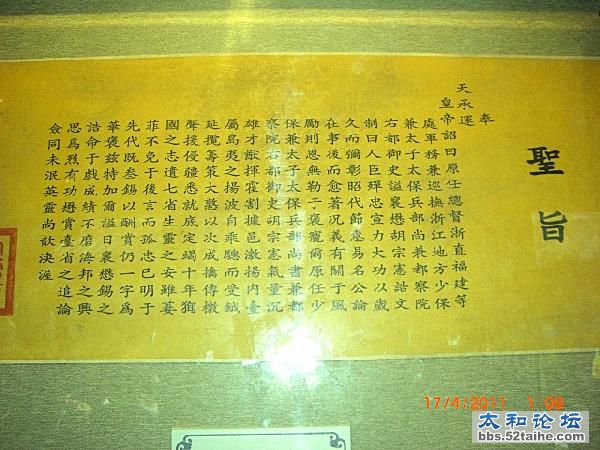 聖旨
奉
天承運
皇帝詔曰原任總督浙直福建等
處軍務兼巡撫浙江地方少保
兼太子太保兵部尚兼都察院
右都御史謚襄懋胡宗憲誥文
制曰人臣殫忠宣力大功以歲
久而彌彰昭代節惠易名公論
在事後而愈著況義有關于風
勵則恩無勒于褒寵爾原任少
保兼太子太保兵部尚書兼都
察院右都御史胡宗憲氣量沉
雄才猷揮霍割據邑激揚內臺
屬島夷之揚波自乘驄而受鉞
延攬籌策大憝以次成擒傳檄
聲援侵疆悉就底定竭十年徇
國之志遺七省生靈之安雖萋
菲不免于後言而孤忠已明于
先代既叁錫以酬賞仍一字為
華褒茲特加謚曰襄懋錫之
誥命于戲成績不磨海邦之興
思為烈有功懋賞臺省之追論
僉同未泯英靈尚歆渙渥
17/4/2011 1:08
太和论坛
bbs.52taihe.com